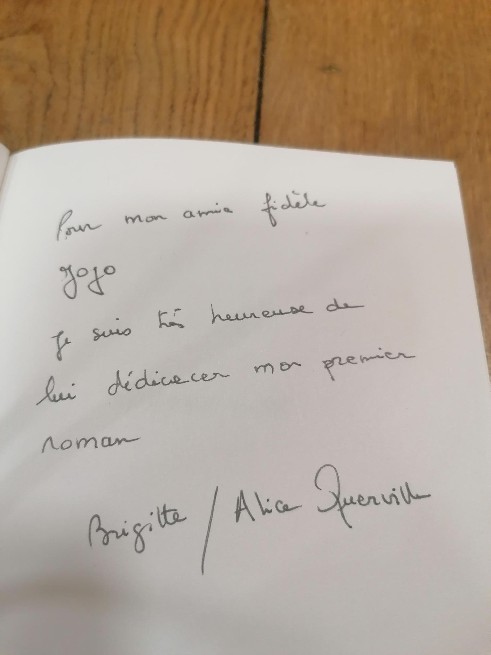 Pour mon amie fidèle
Jojo
Je suis très heureuse de
lui dédicacer mon premier
roman
Brigitte / Alice Querville